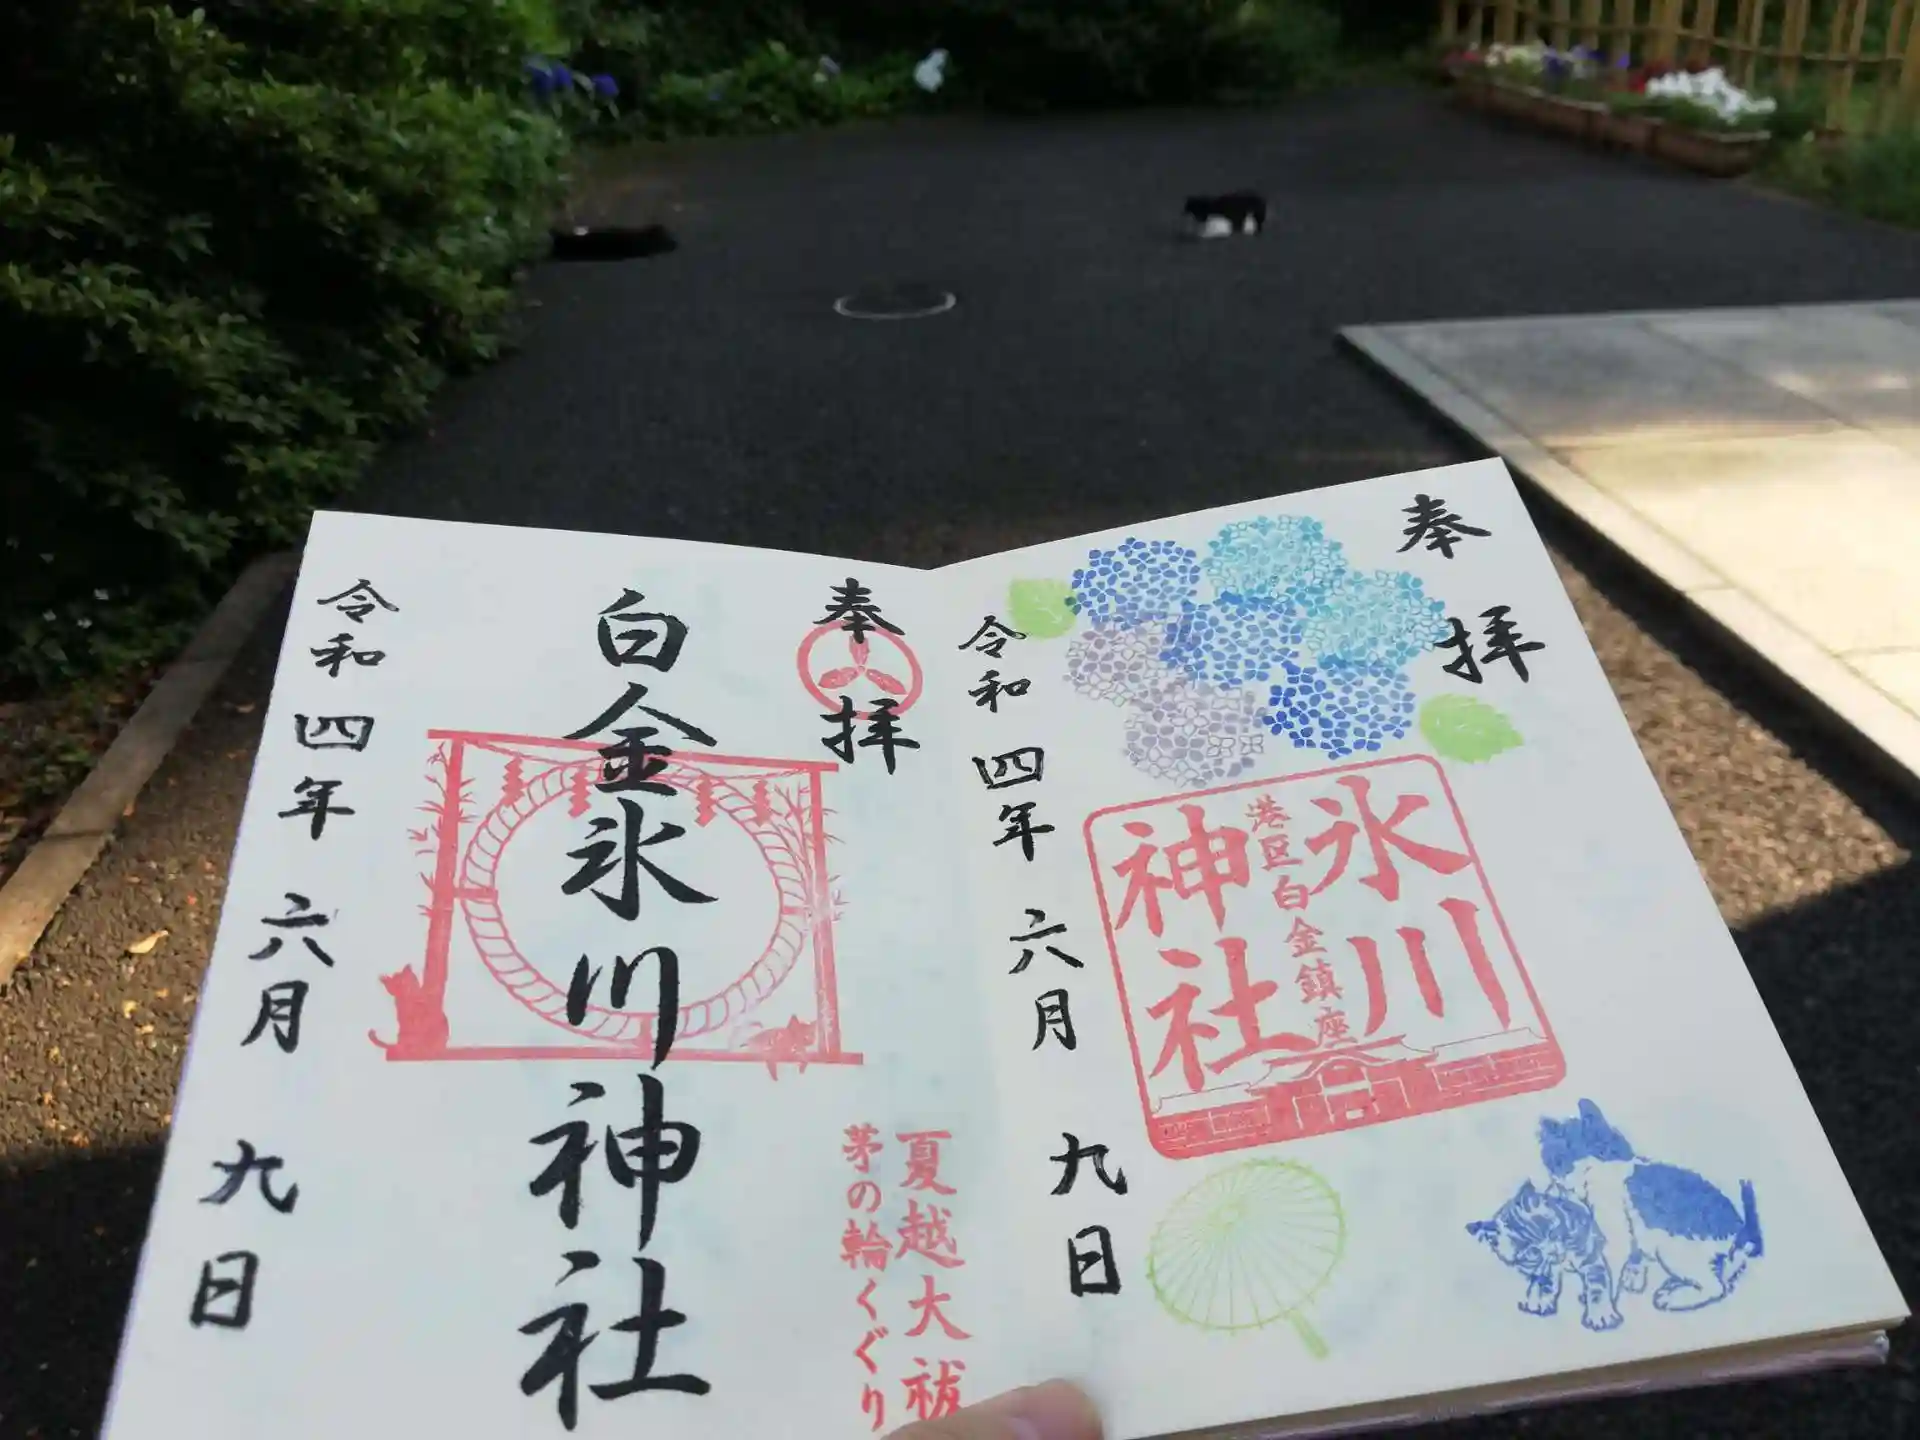 奉拝
氷川
港区白金鎮座
神社
令和四年六月九日
奉拝
白金氷川神社
夏越大祓
茅の輪くぐり
令和四年六月九日